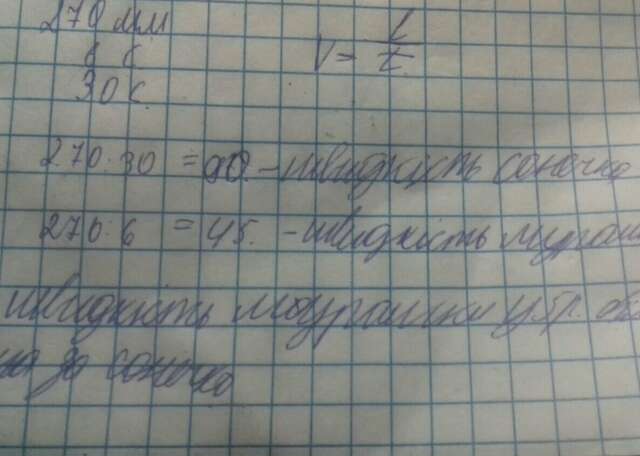 270 мм
6 с
30 с.
V = l/t
270:30 = 90. - швидкість сонечка
270:6 = 45. - швидкість мураш
швидкість моурашки у 5р.
за сонечко